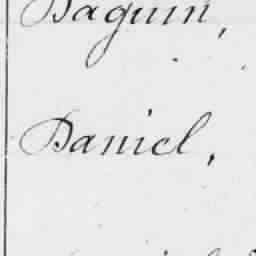 Daguin,
Daniel,